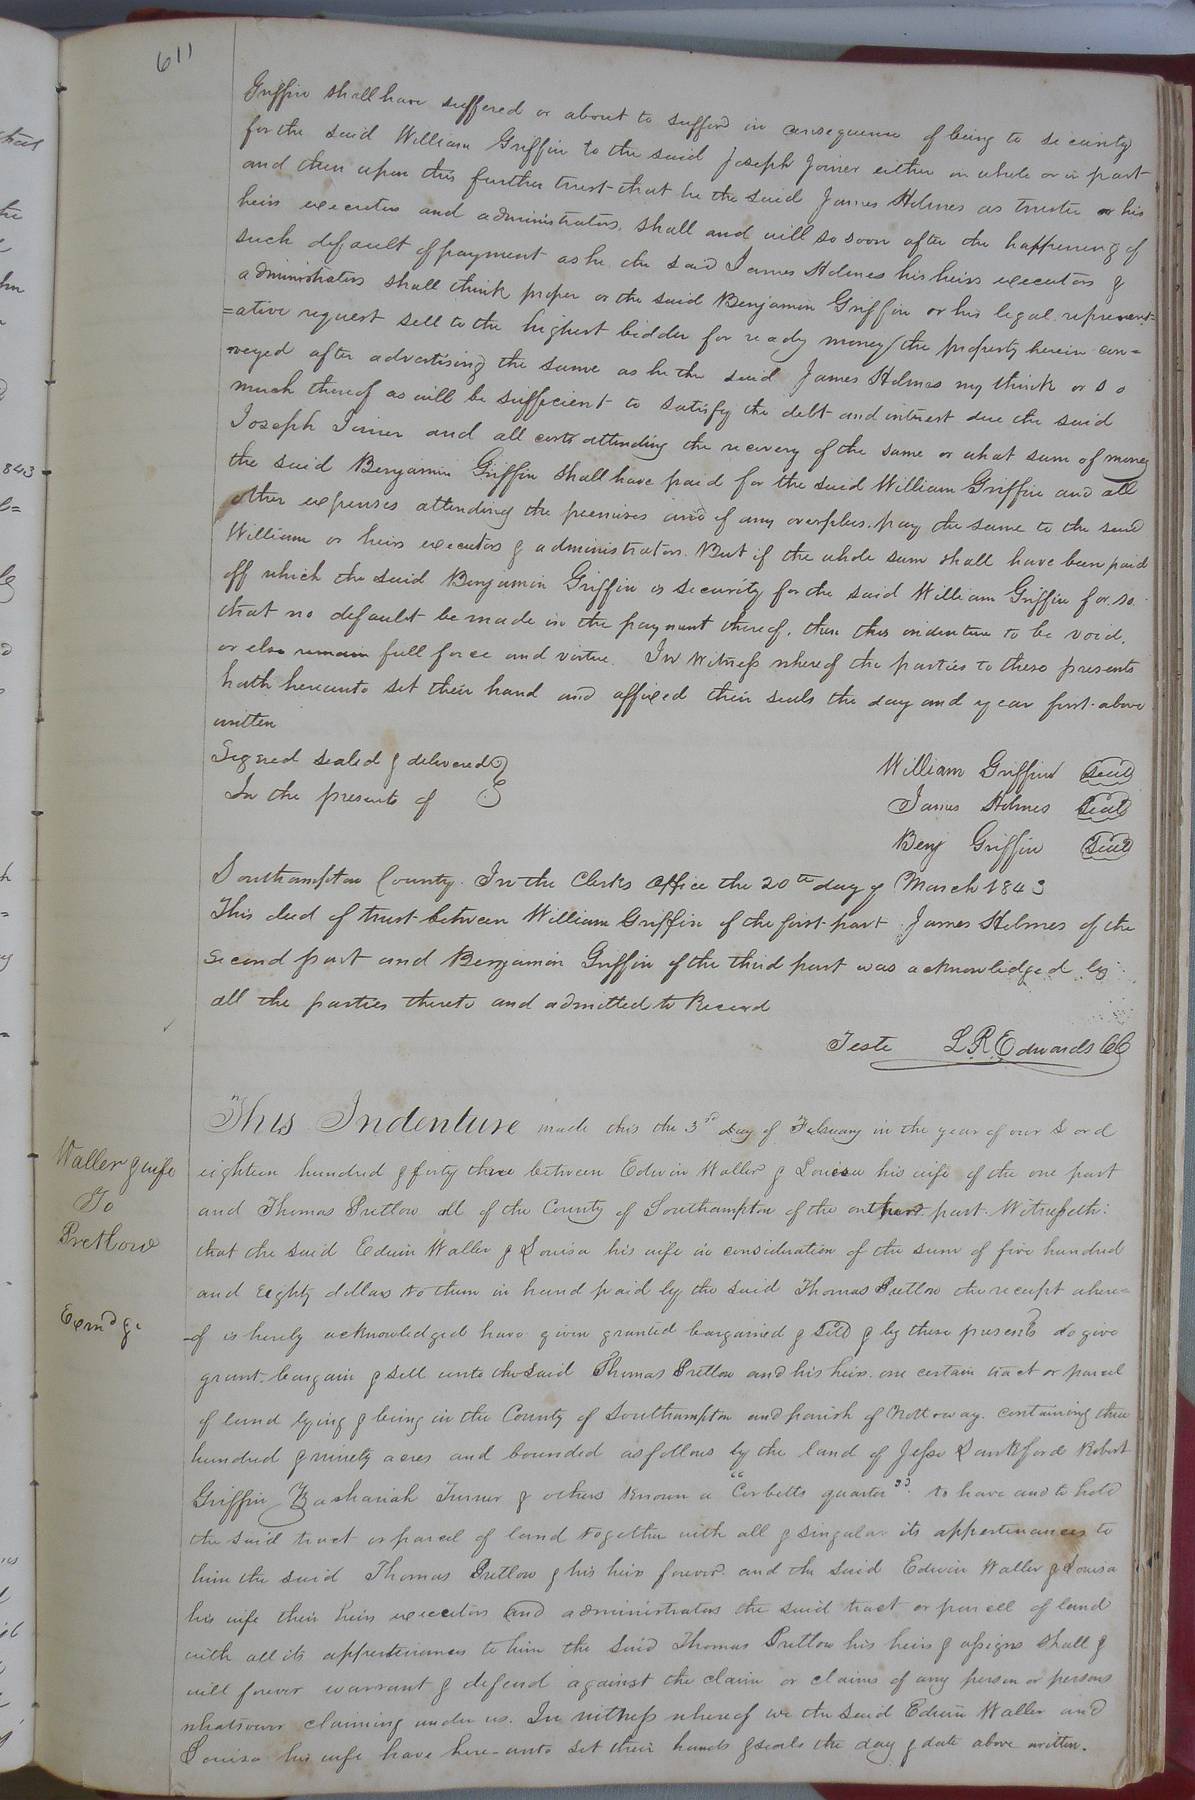 611
Griffin shall have suffered or about to suffered in consequence of being to security
for the said William Griffin to the said Joseph Joiner either in whole or in part
and then upon this further trust that he the said James Holmes as trustee or his
heirs executors and administrators, shall and will so soon after the happening of
such default of payment as he the said James Holmes his heirs executors &
administrators shall think proper or the said Benjamin Griffin or his legal represent-
=ative request sell to the highest bidder for ready money / the property herein con=
veyed after advertising the same as he the said James Holmes my think or so
much thereof as will be sufficient to satisfy the debt and interest due the said
Joseph Joiner and all costs attending the recovery of the same or what sum of money
the said Benjamin Griffin shall have paid for the said William Griffin and all
other expenses attending the premises and if any overplus. pay the same to the said
William or heirs executors & administrators. But if the whole sum shall have been paid
off which the said Benjamin Griffin is security for the said William Griffin for so
that no default be made in the payment thereof, then this indenture to be void,
or else remain full force and virtue. In Witness whereof the parties to these presents
hath hereunto set their hand and affixed their seals the day and year first above
written
Signed sealed & delivered
In the presents of
William Griffin Seal
James Holmes Seal
Benj Griffin Seal
Southampton County. In the Clerks Office the 20th day of March 1843
This deed of trust between William Griffin of the first part James Holmes of the
second part and Benjamin Griffin of the third part was acknowledged by
all the parties thereto and admitted to Record
Teste L. R. Edwards CC
This Indenture made this the 3rd day of February in the year of our Lord
Waller & wife
To
Pretlow
eighteen hundred & forty three between Edwin Waller & Louisa his wife of the one part
and Thomas Pretlow all of the County of Southampton of the other part. Witnesseth:
that the said Edwin Waller & Louisa his wife in consideration of the sum of five hundred
and Eighty dollars to them in hand paid by the said Thomas Pretlow the receipt where=
Exmd &c
-of is hereby acknowledged have given granted bargained & sold & by these presents do give
grant. bargain & sell unto the said Thomas Pretlow and his heirs. one certain tract or parcel
of land lying & being in the County of Southampton and parish of Nottoway. containing three
hundred & ninety acres and bounded as follows by the land of Jesse Lankford Robert
Griffin Zachariah Turner & others known a "Corbetts quarter". to have and to hold
the said tract or parcel of land together with all & singular its appertenances to
him the said Thomas Pretlow & his heirs forever. and the said Edwin Waller & Louisa
his wife their heirs executors and administrators the said tract or parcell of land
with all its appertenances to him the said Thomas Pretlow his heirs & assigns shall &
will forever warrant & defend against the claim or claims of any person or persons
whatsoever claiming under us. In witness whereof we the said Edwin Waller and
Louisa his wife have here-unto set their hands & seals the day & date above written.